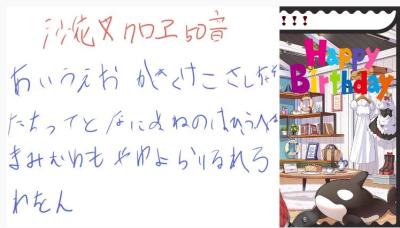 沙花叉クロヱ50音
あいうえお かきくけこ さしすせそ
たちつてと なにぬねの はひふへほ
まみむめも やゆよ らりるれろ
わをん
!!!
Happy
Birthday